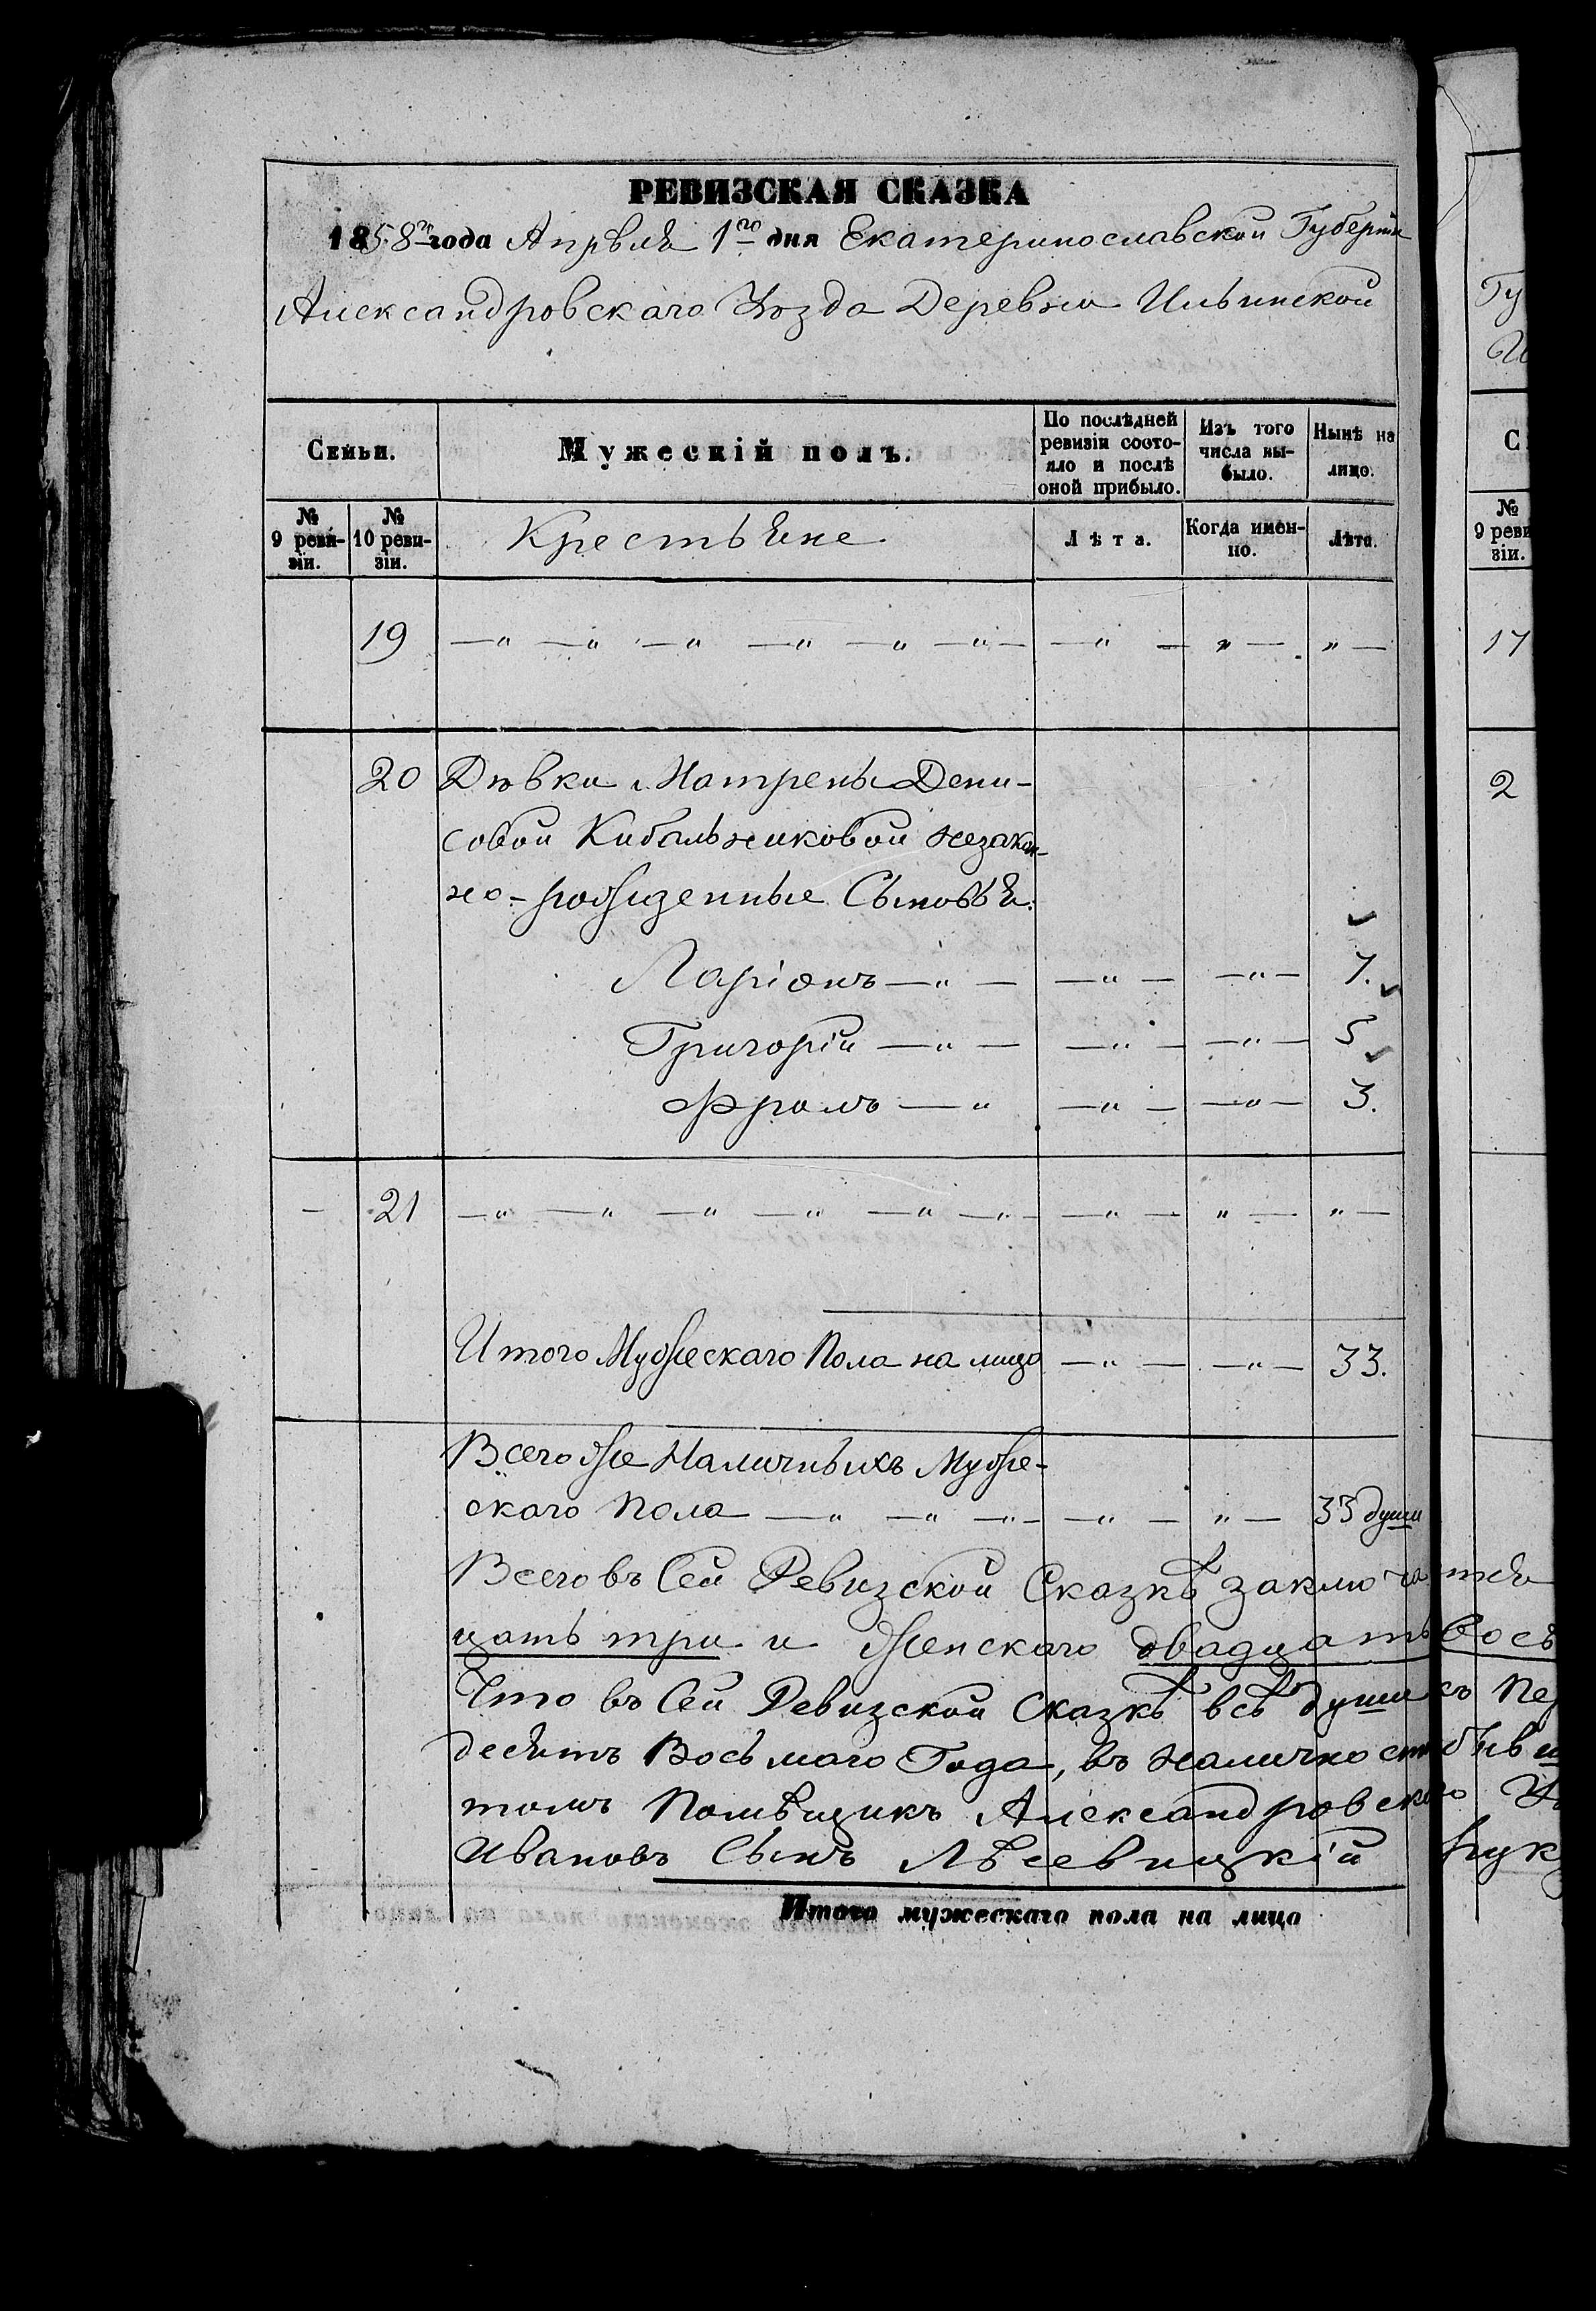 РЕВИЗСКАЯ СКАЗКА
1858го года Апрѣля 1го дня Екатеринославской Губерніи
Александровскаго Уѣзда Деревни Ильинской
Семьи.
Мужескій полъ.
По послѣдней ревизіи состояло и послѣ оной прибыло.
Изъ того числа выбыло.
Нынѣ на лицо.
№ 9 ревизіи.
№ 10 ревизіи.
Крестьяне
Лѣта.
Когда именно.
Лѣта.
19 —„ —„ —„ —„ —„ —„— —„ — „ — „ —
20 Дѣвки Матрены Дени-
совой Кибальниковой незакон-
но-рожденные Сыновья:
Ларіонъ —„— —„— —„— 7.
Григорій —„— —„— —„— 5
Фролъ —„ —„— —„— 3.
— 21 —„ —„ —„ —„ —„ —„— —„ — „ — „ —
Итого Мужескаго Пола на лицо —„— —„— 33.
Всего же Наличныхъ Муже-
скаго Пола —„ —„ —„— —„ — „ — 33 души
Всего въ Сей Ревизской Сказкѣ заключа
цать три и Женскаго двадцать
Что въ Сей Ревизской Сказкѣ всѣ души
десятъ Восьмаго Года, въ наличности
томъ Помѣщикъ Александровска
Ивановъ Сынъ Лѣсевицкій
Итого мужескаго пола на лицо
Гу
С
№
9 реви
зіи.
17
2
тся
Вось
къ Пер
бывш
го
руку